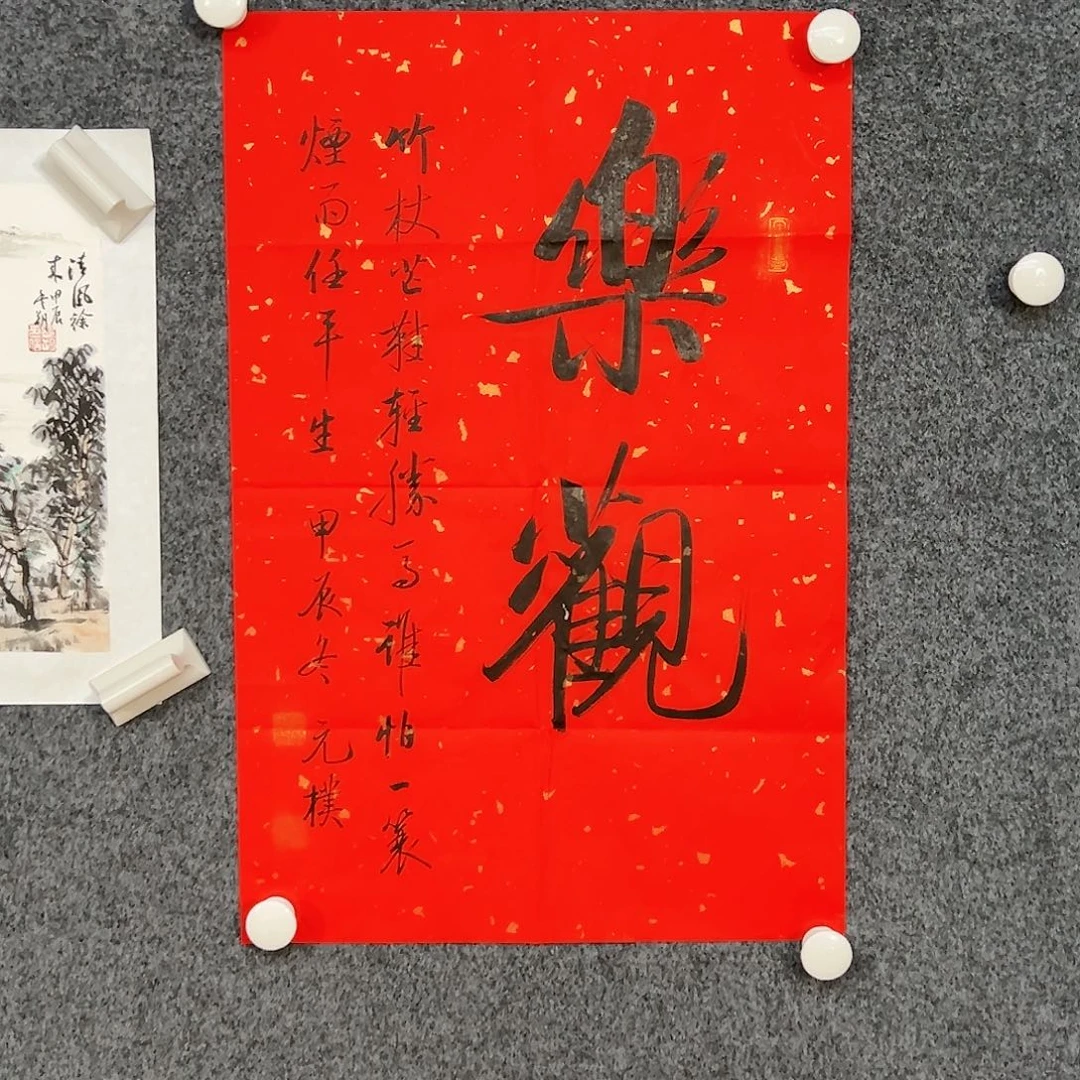 樂觀
竹杖芒鞋輕勝馬誰怕一蓑
煙雨任平生 甲辰冬 元樸
清風徐
來 甲辰